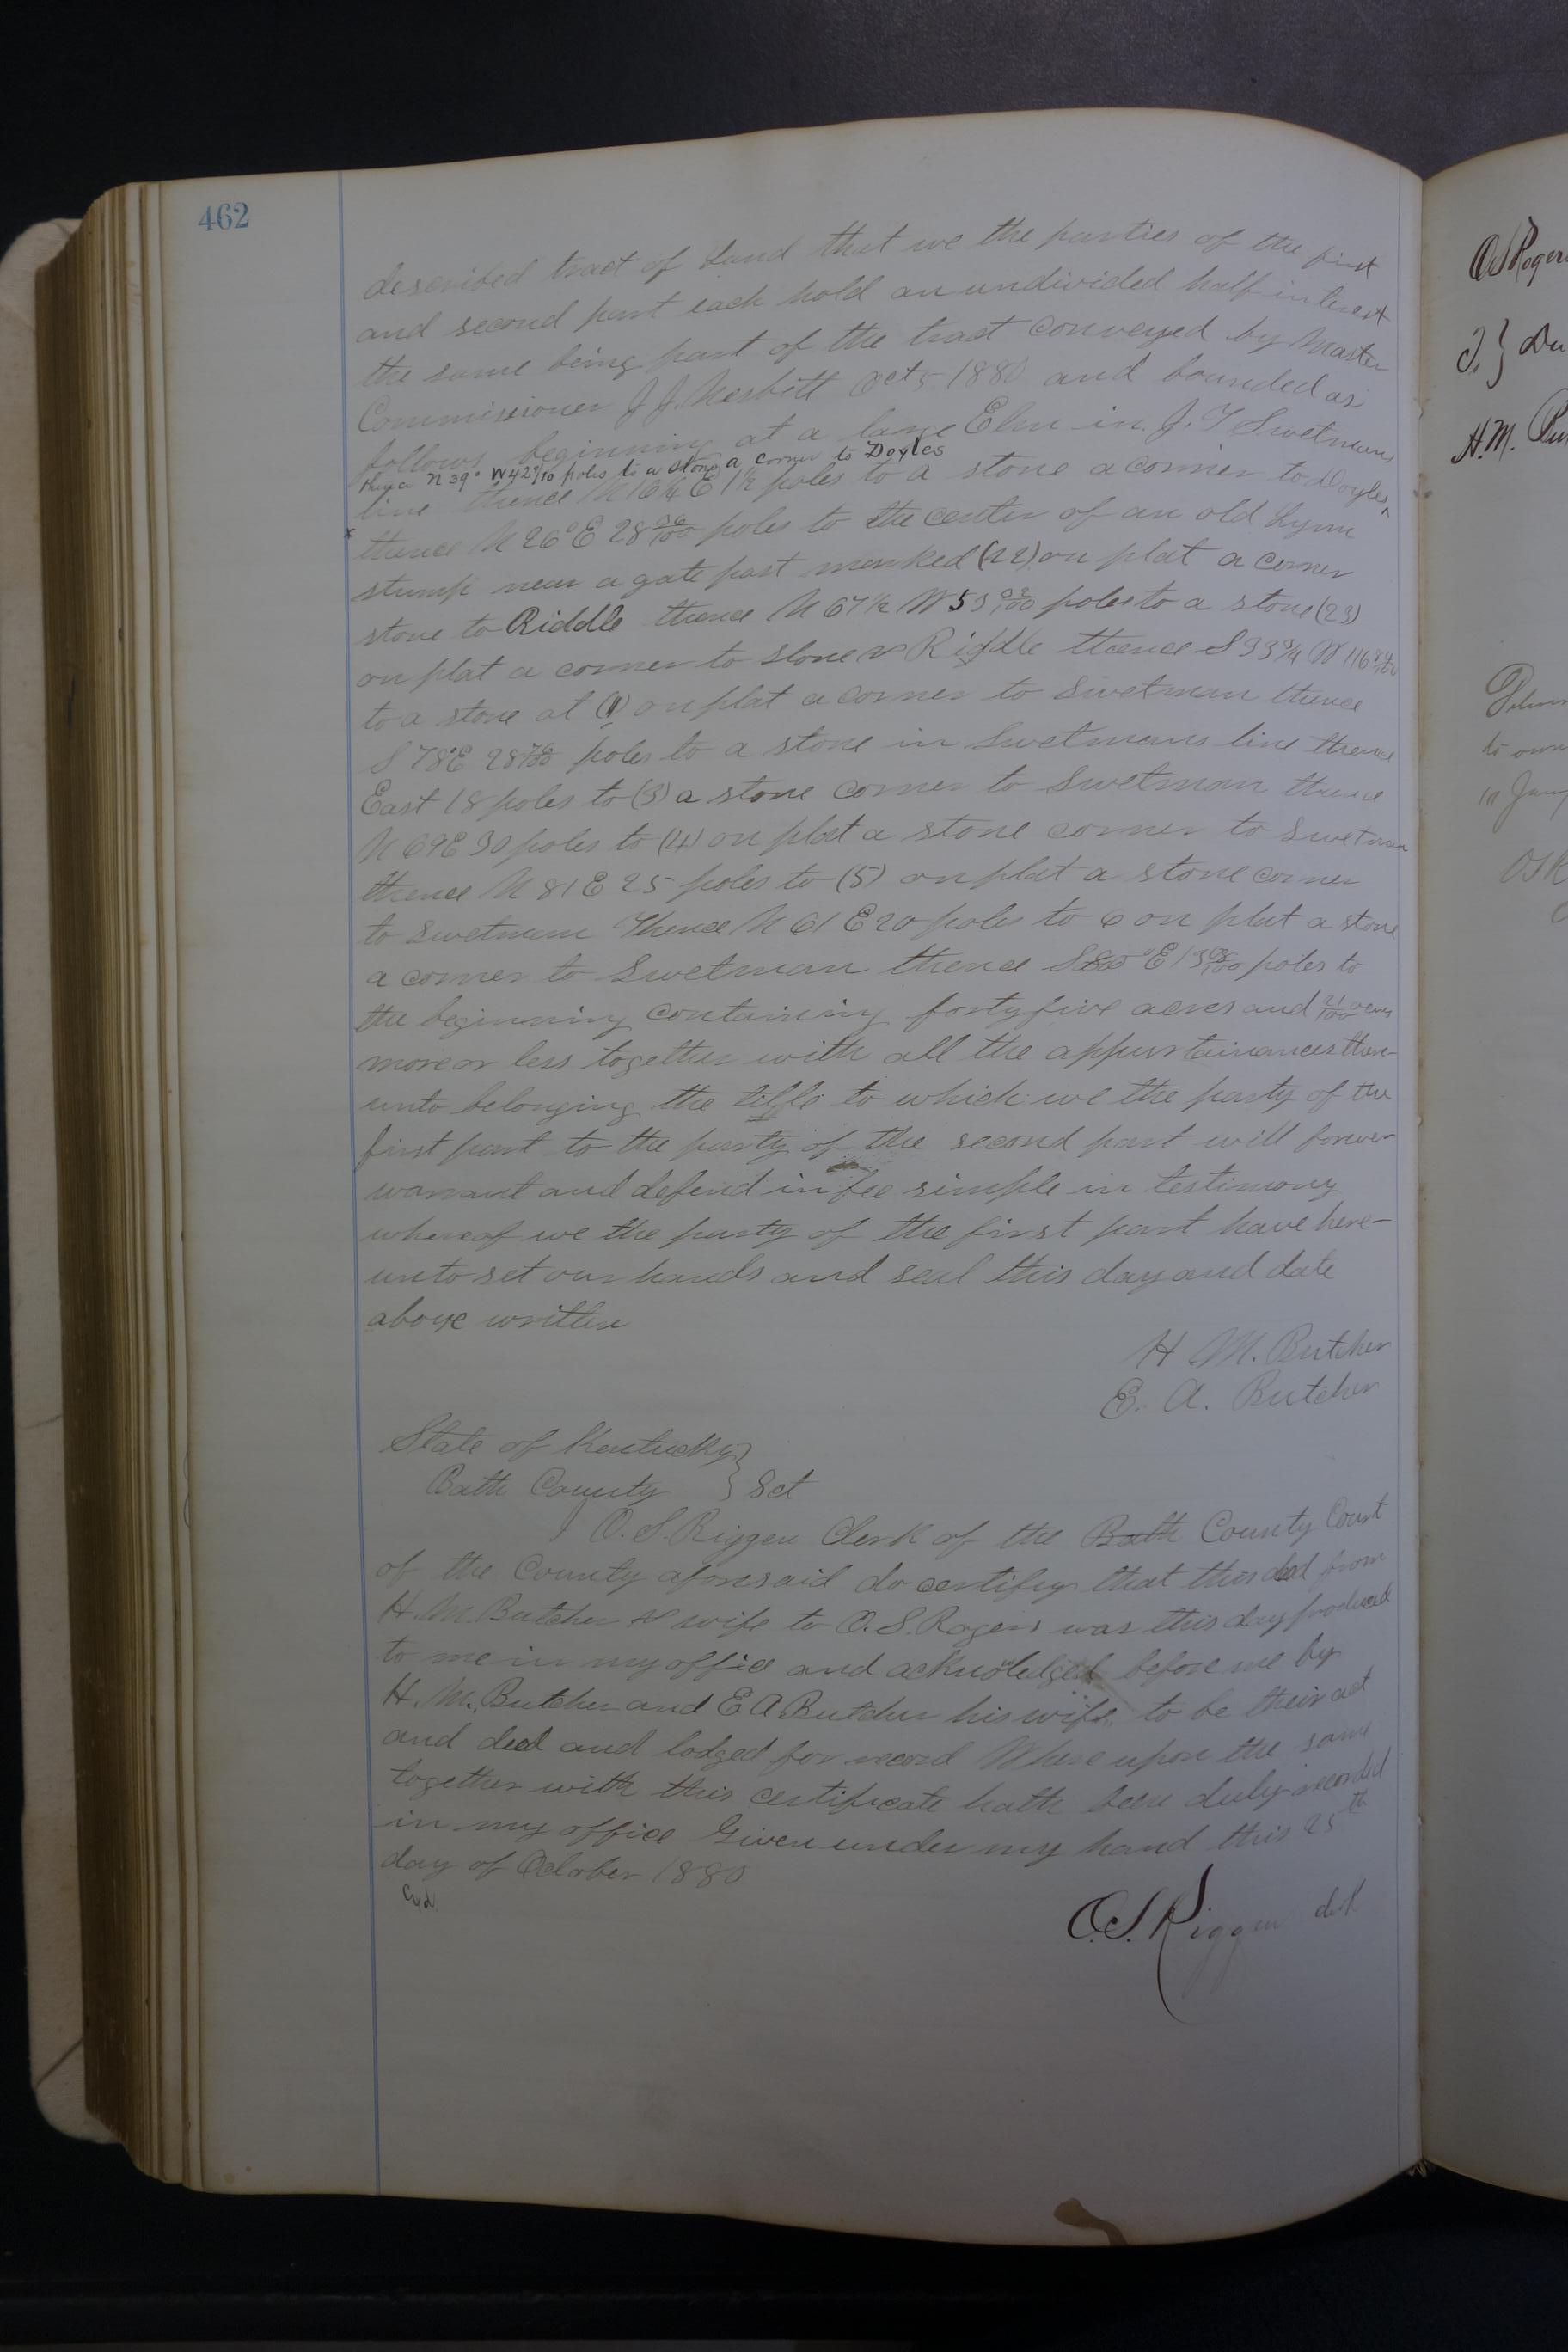 462
described tract of Land that we the parties of the first
and second part each hold an undivided half interest
the same being part of the tract conveyed by Master
Commissioner J. J. Nesbitt Oct 5 1880 and bounded as
follows beginning at a large Elm in J. T Swetmans
thence N 39° W 42 poles to a stone a corner to Doyles
line thence N 16¼ E 1½ poles to a stone a corner to Doyles
x thence N 26° E 28 36/100 poles to the center of an old Lynn
stump near a gate post marked (22) on plat a corner
stone to Riddle thence N 67½ W 53 poles to a stone (23)
on plat a corner to stone & Riddle thence S 33¾ W 116
to a stone at (1) on plat a corner to Swetman thence
S 78°E 28 76/100 poles to a stone in Swetmans line thence
East 18 poles to (3) a stone corner to Swetman thence
N 69E 30 poles to (4) on plat a stone corner to Swetman
thence N 81 E 25 poles to (5) on plat a stone corner
to Swetmam Thence N 61 E 20 poles to 6 on plat a stone
a corner to Swetman thence S °E 13 poles to
the beginning containing forty five acres and 21/100 acres
more or less together with all the appurtainances there-
unto belonging the title to which we the party of the
first part to the party of the second part will forever
warrant and defend in fee simple in testimony
whereof we the party of the first part have here-
unto set our hands and seal this day and date
above written
H M. Butcher
E. A. Butcher
State of Kentucky }
Bath County } Sct
I O. S. Riggen Clerk of the Bath County Court
of the County aforesaid do certify that this deed from
H. M. Butcher & wife to O. S. Rogers was this day produced
to me in my office and acknowledged before me by
H. M. Butcher and E A Butcher his wife to be their act
and deed and lodged for record Where upon the same
together with this certificate hath been duly recorded
in my office Given under my hand this 25th
day of October 1880
O. S. Riggen clerk
O S Rogers
H. M.